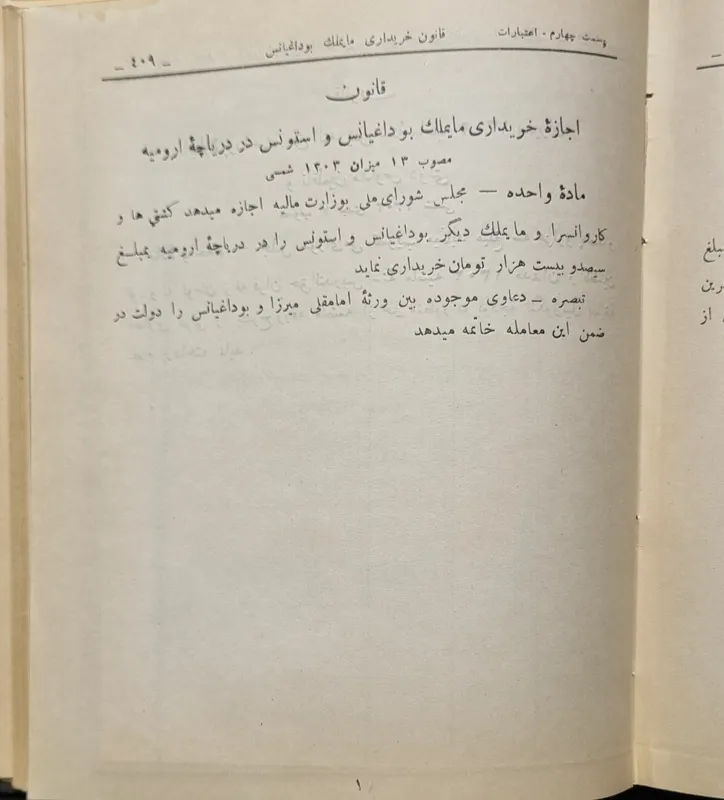 قسمت چهارم - اعتبارات قانون خریداری مایملك بوداغیانس – ٤٠٩ –
قانون
اجازهٔ خریداری مایملك بوداغیانس و استونس در دریاچهٔ ارومیه
مصوب ١٣ میزان ١٣٠٣ شمسی
مادهٔ واحده — مجلس شورای ملی بوزارت مالیه اجازه میدهد کشتی ها و
کاروانسرا و مایملك دیگر بوداغیانس و استونس را در دریاچهٔ ارومیه بمبلغ
سیصدو بیست هزار تومان خریداری نماید
تبصره – دعاوی موجوده بین ورثهٔ امامقلی میرزا و بوداغیانس را دولت در
ضمن این معامله خاتمه میدهد
١
مبلغ
رین
از